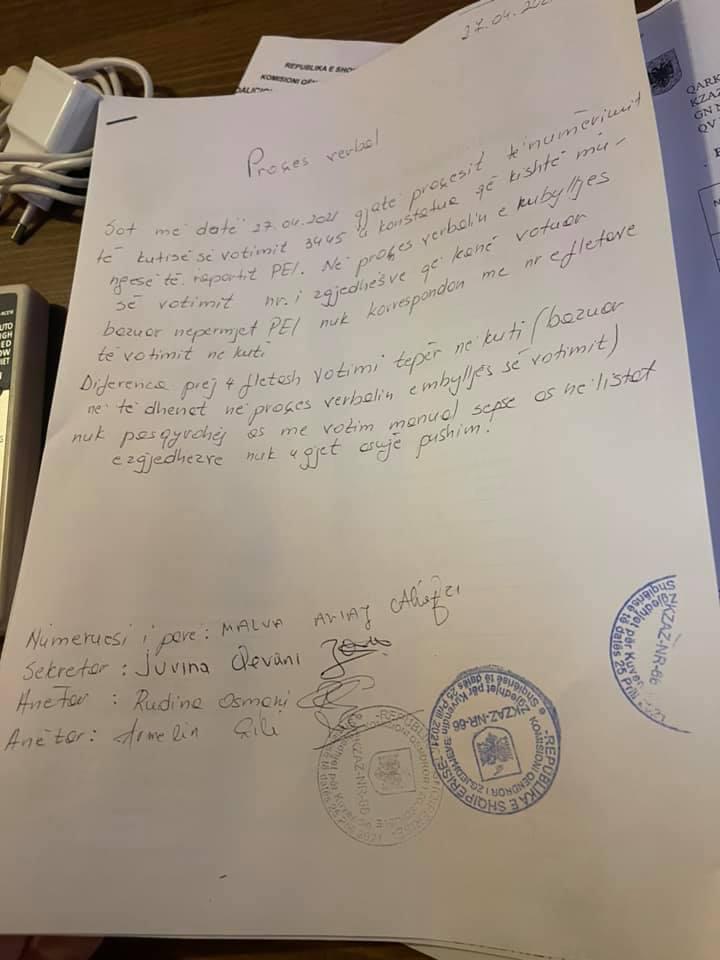 27.04.202
REPUBLIKA E SHQ
KOMISIONI QEN
OALICIO
QARK
KZAZ
GN N
QV
Proçes verbal
Sot me datë 27.04.2021 gjatë proçesit të numërimit
të kutisë së votimit 3445 u konstatua që kishte mu-
ngesë të raportit PEI. Në proçes verbalin e mbylljes
së votimit nr. i zgjedhësve që kanë votuar
bazuar nepermjet PEI nuk korrespondon me nr e fletëve
të votimit në kuti
Diferenca prej 4 fletësh votimi tepër në kuti (bazuar
në të dhënat në proçes verbalin e mbylljes së votimit)
nuk pasqyrohej as me votim manual sepse as në listat
e zgjedhëzve nuk u gjet asujë pushim.
Numeruesi i parë: MALVA ALIAJ
Sekretar : Juvina Devani
Anëtar : Rudina Osmani
Anëtar: Armelin
REPUBLIKA E SHQIPERISE
KOMISIONI QENDROR I ZGJEDHJEVE
KZAZ-NR-66
Zgjedhjet për Kuvendin
e Shqipërisë të datës 25 Prill 2021
KZAZ-NR-66
KZAZ-NR-66
Zgjedhjet për Kuve
Shqipërisë të datës 25 Pri